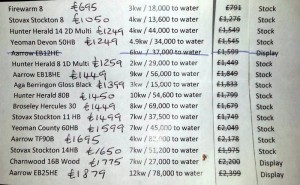 Firewarm 8 £695 3kw / 18,000 to water £791 Stock
Stovax Stockton 8 £1050 4kw / 13,600 to water £1,276 Stock
Hunter Herald 14 2D Multi £1249 4kw / 44,000 to water £1,549 Stock
Yeoman Devon 50HB £1249 4.9kw / 34,000 to water £1,545 Stock
Aarrow EB12HE 6kw / 37,000 to water £1,599 Display
Hunter Herald 8 1D Multi £1259 2kw / 29,000 to water £1,549 Stock
Aarrow EB18HE £1449 9kw / 56,000 to water £1,849 Stock
Aga Berrington Gloss Black £1399 3kw / 51,000 to water £1,833 Stock
Hunter Herald 80B £1450 10kw / 54,600 to water £1,799 Stock
Broseley Hercules 30 £1449 8kw / 69,000 to water £1,679 Stock
Stovax Stockton 11 HB £1499 3kw / 37,500 to water £1,749 Stock
Yeoman County 60HB £1599 7kw / 45,000 to water £2,049 Stock
Aarrow TF90B £1695 4kw / 82,000 to water £2,178 Stock
Stovax Stockton 14HB £1650 7kw / 51,200 to water £1,975 Stock
Charnwood 16B Wood £1775 7kw / 27,000 to water £2,200 Display
Aarrow EB25HE £1879 12kw / 78,000 to water £2,399 Display